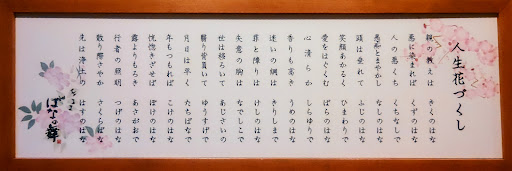 人生花づくし
親の教えは　きくのはな
悪に染まれば　くずのはな
人の悪くち　くちなしで
なしのはな
頭は垂れて　ふじのはな
笑顔あかるく　ひまわりで
愛をはぐくむ　ばらのはな
心清らか　しらゆりで
香りも高き　うめのはな
迷いの網は　きりしまで
罪と障りは　けしのはな
失意の胸は　なでしこで
世は移ろいて　あじさいの
翳り背置いて　ゆうすげで
月日は早く　たちばなで
年もつもれば　こけのはな
恍惚きざせば　ぼけのはな
露よりもろき　あさがおで
行者の照明　つげのはな
散り際さやか　さくらばな
先は浄土の　はすのはな
ばなの舞